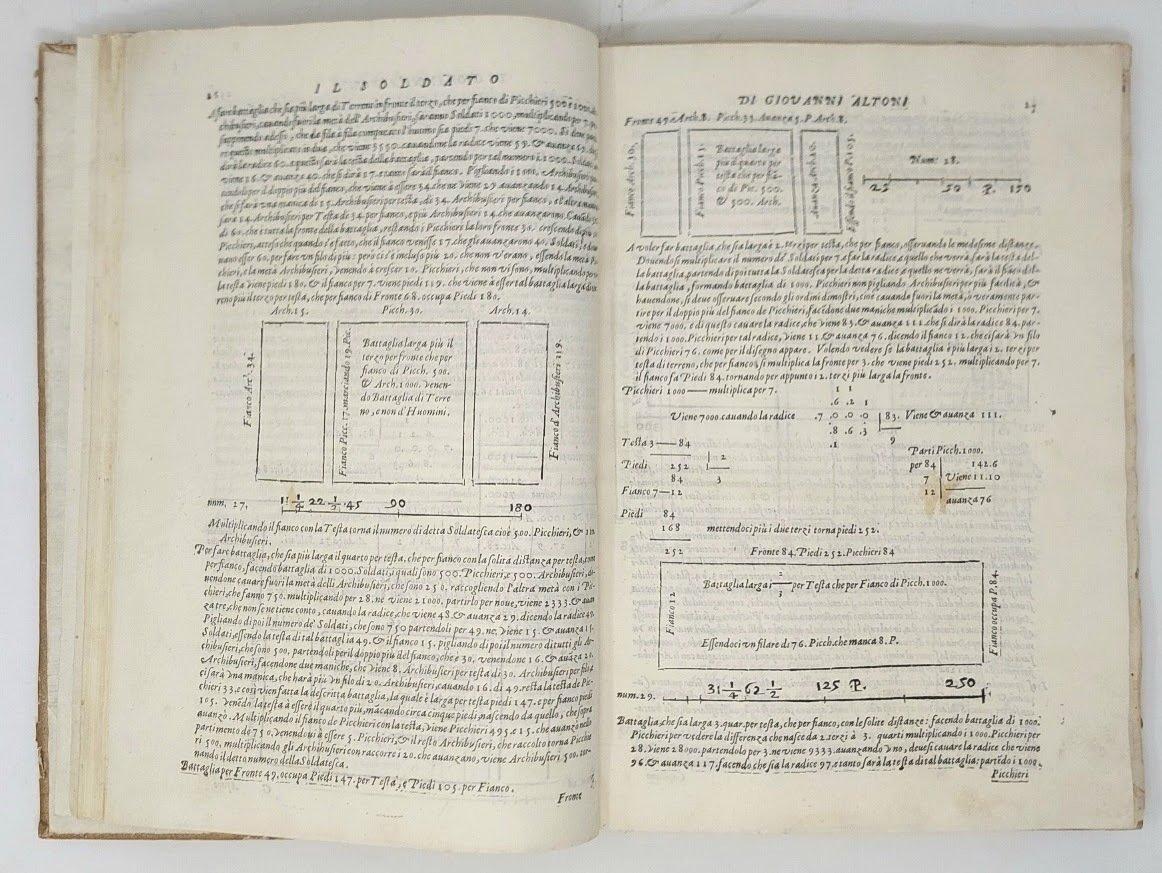 IL SOLDATO
A far battaglia, che sia più larga di Terreno in fronte il terzo, che per fianco di Picchieri 500 e 1000
chibusieri, cavando fuori la metà dell'Archibusieri, saranno Soldati 1000, multiplicando per 7.
che viene 7000.
questo multiplicato in due, che viene 3550. cavandone la radice viene 59. & avanza
dirà la radice 60. e questa sarà la testa della battaglia, partendo per tal numero i 1000. Soldati,
viene 16. & avanza 40. che si dirà 17. e tanto sarà il fianco. Pigliando i 500. Archibusieri
endoli per il doppio più del fianco, che viene à essere 34. che ne viene 29 avanzando 14. Archibusieri
si farà una manica di 15. Archibusieri per testa, di 34. Archibusieri per fianco, e l'altra manica
sarà 14. Archibusieri per Testa di 34. per fianco, e più Archibusieri 14. che avanzarono.
di 60. che è tutta la fronte della battaglia, restando i Picchieri la loro fronte 30. crescendo di più
Picchieri, atteso che quando s'è fatto, che il fianco venisse 17. che gli avanzarono 40. Soldati, e do
vano esser 60. per fare un filo di più: però ci è incluso più 20. che non v'erano, essendo la metà Pic
chieri, e la metà Archibusieri, venendo à crescer 10. Picchieri, che non vi sono, multiplicando per
la testa viene piedi 180. & il fianco per 7. viene piedi 119. che viene à esser tal battaglia larga di
reno più il terzo per testa, che per fianco di Fronte 68. occupa Piedi 180.
Arch. 15. Picch. 30. Arch. 14.
Fianco Arch. 34.
Fianco Picc. 17. marciando 119. Pie.
Battaglia larga più il
terzo per fronte che per
fianco di Picch. 500.
& Arch. 1000. venen-
do Battaglia di Terre
no, e non d'Huomini.
Fianco d'Archibusieri 119.
num. 27. 11 1/4 22 1/2 45 90 180
Multiplicando il fianco con la Testa torna il numero di detta Soldatesca cioè 500. Picchieri, &
Archibusieri.
Per fare battaglia, che sia più larga il quarto per testa, che per fianco con la solita distanza per testa, come
per fianco, facendo battaglia di 1000. Soldati, i quali sono 500. Picchieri, e 500. Archibusieri,
vendone cavare fuori la metà delli Archibusieri, che sono 250, raccogliendo l'altra metà con i Pic-
chieri, che fanno 750. multiplicando per 28. ne viene 21000. partirlo per nove, viene 2333. & avan
za tre, che non se ne tiene conto, cavando la radice, che viene 48. & avanza 29. dicendo la radice 49.
Pigliando di poi il numero de' Soldati, che sono 750 partendoli per 49. ne viene 15. & avanza 15.
Soldati, essendo la testa di tal battaglia 49. & il fianco 15. pigliando di poi il numero di tutti gli Ar-
chibusieri, che sono 500. partendoli per il doppio più del fianco, che è 30. venendone 16. & avanza 20.
Archibusieri, facendone due maniche, che viene 8. Archibusieri per testa di 30. Archibusieri per fila,
ci sarà una manica, che harà più un filo di 20. Archibusieri, cavando 16. di 49. resta la testa de Pic-
chieri 33. e così vien fatta la descritta battaglia, la quale è larga per testa piedi 147. e per fianco piedi
105. venendo la testa à essere il quarto più, macando circa cinque piedi, nascendo da quello, che sopra
avanzò. Multiplicando il fianco de Picchieri con la testa, viene Picchieri 495 e 15. che avanzò nello
partimento de 750, venendovi à essere 5. Picchieri, & il resto Archibusieri, che raccolto torna Picchie
ri 500. multiplicando gli Archibusieri con raccorre i 20. che avanzano, viene Archibusieri 500. tor-
nando il detto numero della Soldatesca.
Battaglia per Fronte 49, occupa Piedi 147. per Testa, e Piedi 105. per Fianco.
Fronte
DI GIOVANNI ALTONI
27
Fronte 49 e Arch. 8. Picch. 33. Avanza 5. P. Arch. 8.
Fianco Arch. 30.
Fianco Picch. 15.
Battaglia larga
più il quarto per
testa che per fia-
co di Pic. 500.
& 500. Arch.
Avanza Arch. 20.
Essendo il fianco P. 105.
Num: 28.
25 50 P. 150
A voler far battaglia, che sia larga i 2. terzi per testa, che per fianco, osservando le medesime distanze.
Dovendosi multiplicare il numero de' Soldati per 7. e far la radice, e quello che verrà, sarà la testa del-
la battaglia, partendo di poi tutta la Soldatesca per la detta radice, e quello ne verrà, sarà il fianco del-
la battaglia, formando battaglia di 1000. Picchieri non pigliando Archibusieri per più facilità, &
havendone, si deve osservare secondo gli ordini dimostri, cioè cavarne fuori la metà, o veramente par-
tire per il doppio del fianco de Picchieri, facendone due maniche multiplicado i 1000. Picchieri per 7.
viene 7000. e di questo cavare la radice, che viene 83. & avanza 111. che si dirà la radice 84. par-
tendo i 1000. Picchieri per tal radice, viene 11. & avanza 76. dicendo il fianco 12. che ci sarà un filo
di Picchieri 76. come per il disegno appare. Volendo vedere se la battaglia è più larga i 2. terzi per
testa di terreno, che per fianco, si multiplica la fronte per 3. che viene piedi 252. multiplicando per 7.
il fianco fa Piedi 84. tornando per appunto i 2. terzi più larga la fronte.
Picchieri 1000 — multiplica per 7.
1 1
.6 .2 1
Viene 7000. cavando la radice .7 .0 .0 .0 | 83. Viene & avanza 111.
.8 .6 .3 9
.1
Testa 3 — 84
2
Piedi 252
84 3
Fianco 7 — 12
Piedi 84
168 mettendoci più i due terzi torna piedi 252.
252
Parti Picch. 1000.
per 84 142.6
7 Viene 11.10
12 avanza 76
Fronte 84. Piedi 252. Picchieri 84
Fianco 12
Battaglia larga i 2/3 per Testa che per Fianco di Picch. 1000.
Essendoci un filare di 76. Picch. che manca 8. P.
Fianco occupa P. 84.
num. 29. 31 1/4 62 1/2 125 P. 250
Battaglia, che sia larga 3. quar. per testa, che per fianco, con le solite distanze: facendo battaglia di 1000.
Picchieri per vedere la differenza che nasce da 2. terzi à 3. quarti multiplicando i 1000. Picchieri per
28. viene 28000. partendolo per 3. ne viene 9333. avanzando uno, devesi cavare la radice che viene
96. & avanza 117. facendo che sia la radice 97. e tanto sarà la testa di tal battaglia: partedo i 1000.
Picchieri